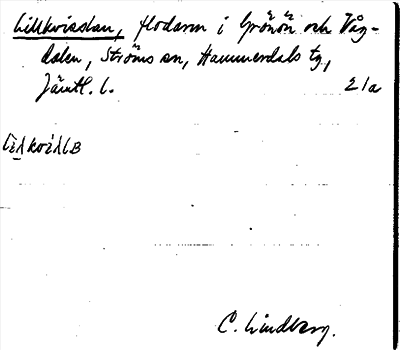 Lillkvisslan, flodarm i Grönön och Våg-
dalen, Ströms sn, Hammerdals tg,
Jämtl. l. 21a
C. Lindberg.